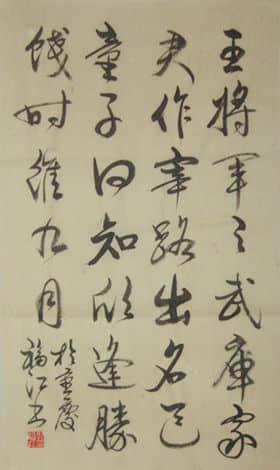 王将军之武庫家
君作宰路出名区
童子何知躬逢勝
餞时維九月
於重慶
福江书